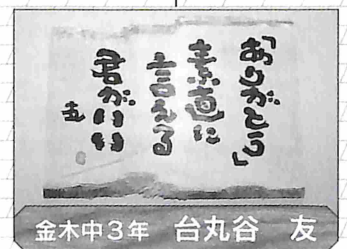 「ありがとう」
素直に
言える
君がいい
友
金木中3年 台丸谷 友